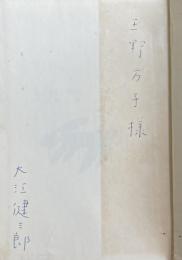 玉野万子様
大江健三郎